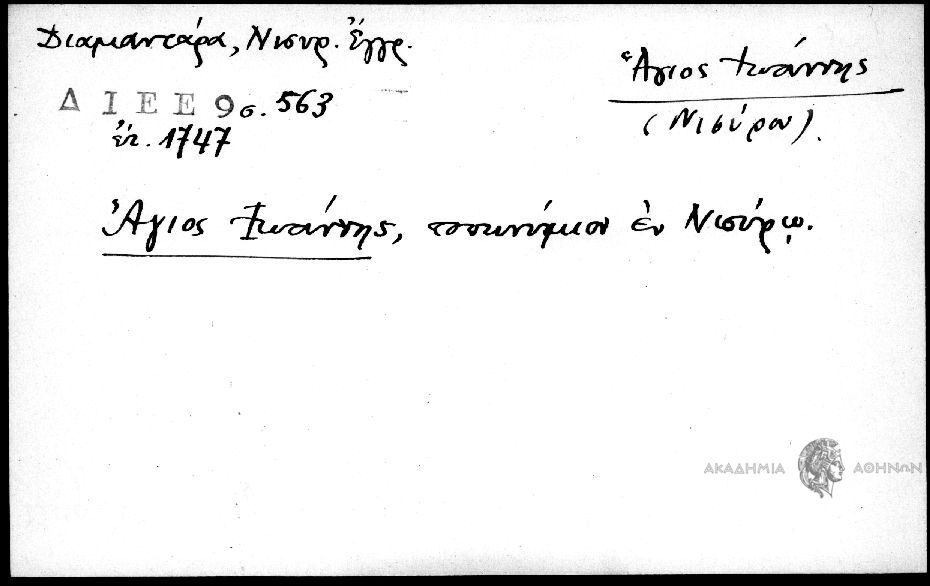 Διαμαντάρα, Νισυρ. Ἔγγρ.
Ἅγιος Ἰωάννης
Δ Ι Ε Ε 9 σ. 563
(Νισύρου).
ἔτ. 1747
Ἅγιος Ἰωάννης, τοπωνύμιον ἐν Νισύρῳ.
ΑΚΑΔΗΜΙΑ ΑΘΗΝΩΝ